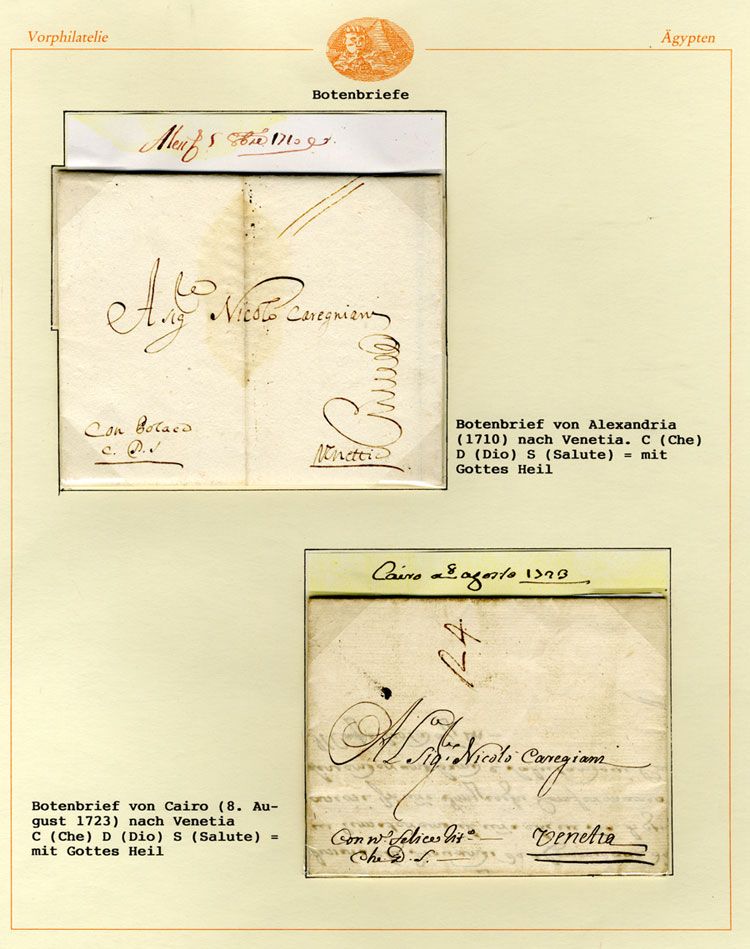 Vorphilatelie
Ägypten
Botenbriefe
5 8bre 1710
A
Sig Nicolò Caregniani
Con Polaco
C. D. S
Venettia
Botenbrief von Alexandria
(1710) nach Venetia. C (Che)
D (Dio) S (Salute) = mit
Gottes Heil
Cairo a 8 agosto 1723
24
Al Sig.re Nicolò Caregiani
Felice
Che D. S.
Venetia
Botenbrief von Cairo (8. Au-
gust 1723) nach Venetia
C (Che) D (Dio) S (Salute) =
mit Gottes Heil